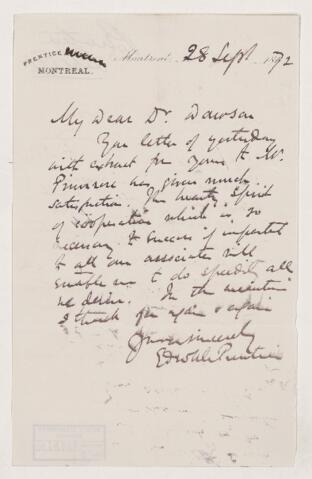 PRENTICE
MONTREAL.
Montreal, 28 Sept. 1892
My Dear Dr. Dawson
Your letter of yesterday
with extract from yours to Mr.
Primrose has given much
satisfaction. The hearty spirit
of cooperation which is so
necessary to success if imparted
to all our associates will
enable us to do speedily all
we desire. In the meantime
I thank you again & again
Yours sincerely
Prentice